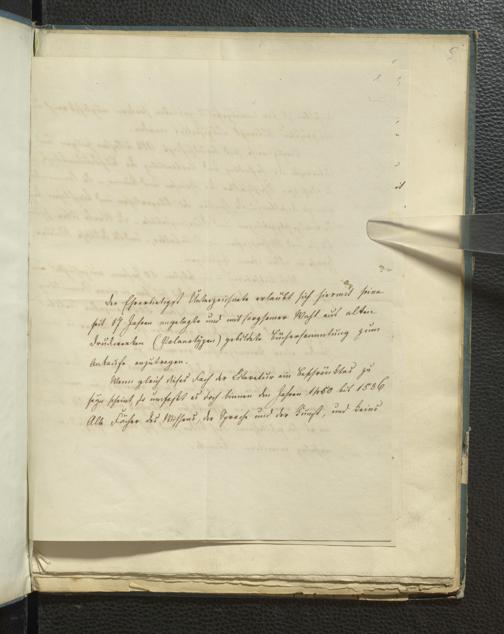 Der Ehrerbietigst Unterzeichnete erlaubt sich hiermit seine
seit 17 Jahren angelegte und mit sorgsamer Wahl aus alten
Druckwerken (Palaeotypen) gebildete Büchersammlung zum
Ankaufe anzutragen.
Wenn gleich dieses Fach der Literatur ein Beschränktes zu
seyn scheint, so umfaßt es doch binnen den Jahren 1450 bis 1536
Alle Fächer des Wissens, der Sprache und der Kunst, und keines